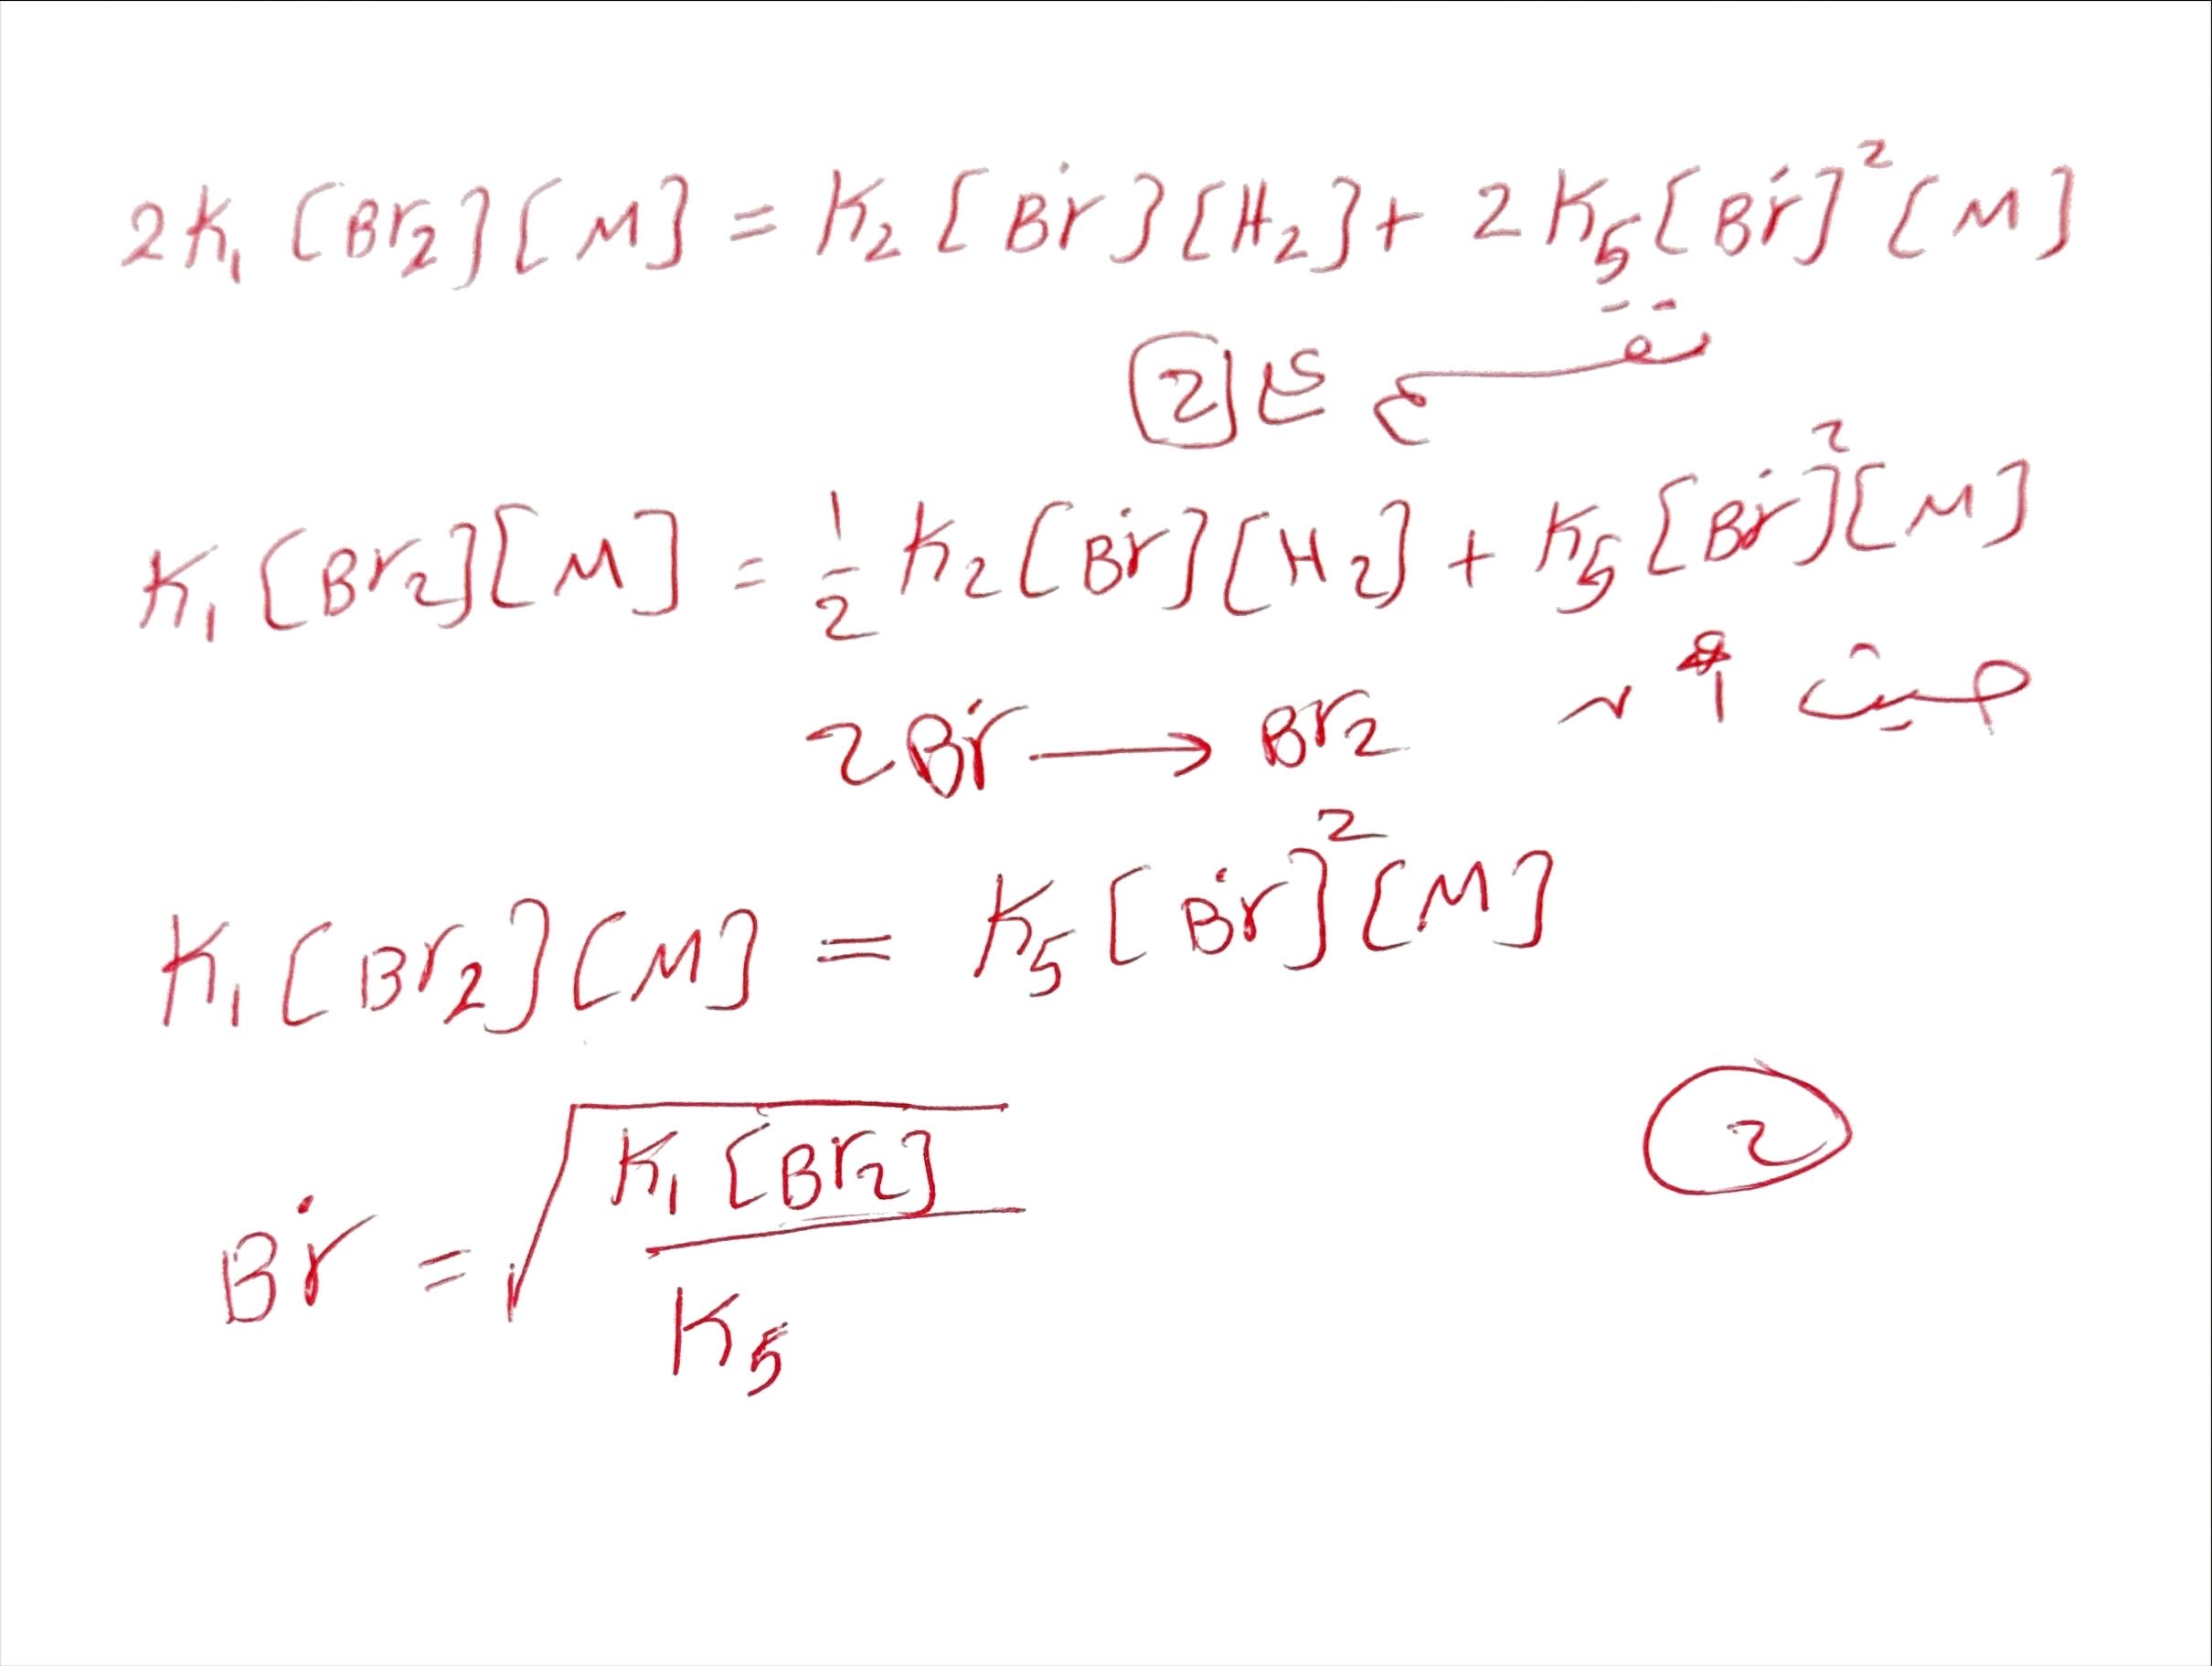 2K₁ [Br₂][M] = K₂ [Ḃr][H₂] + 2K₅[Ḃr]²[M]
نقسم على 2
K₁ [Br₂][M] = 1/2 K₂ [Ḃr][H₂] + K₅ [Ḃr]²[M]
حيث أن
2Ḃr → Br₂
K₁ [Br₂][M] = K₅ [Ḃr]²[M]
2
Ḃr = √(K₁ [Br₂] / K₅)